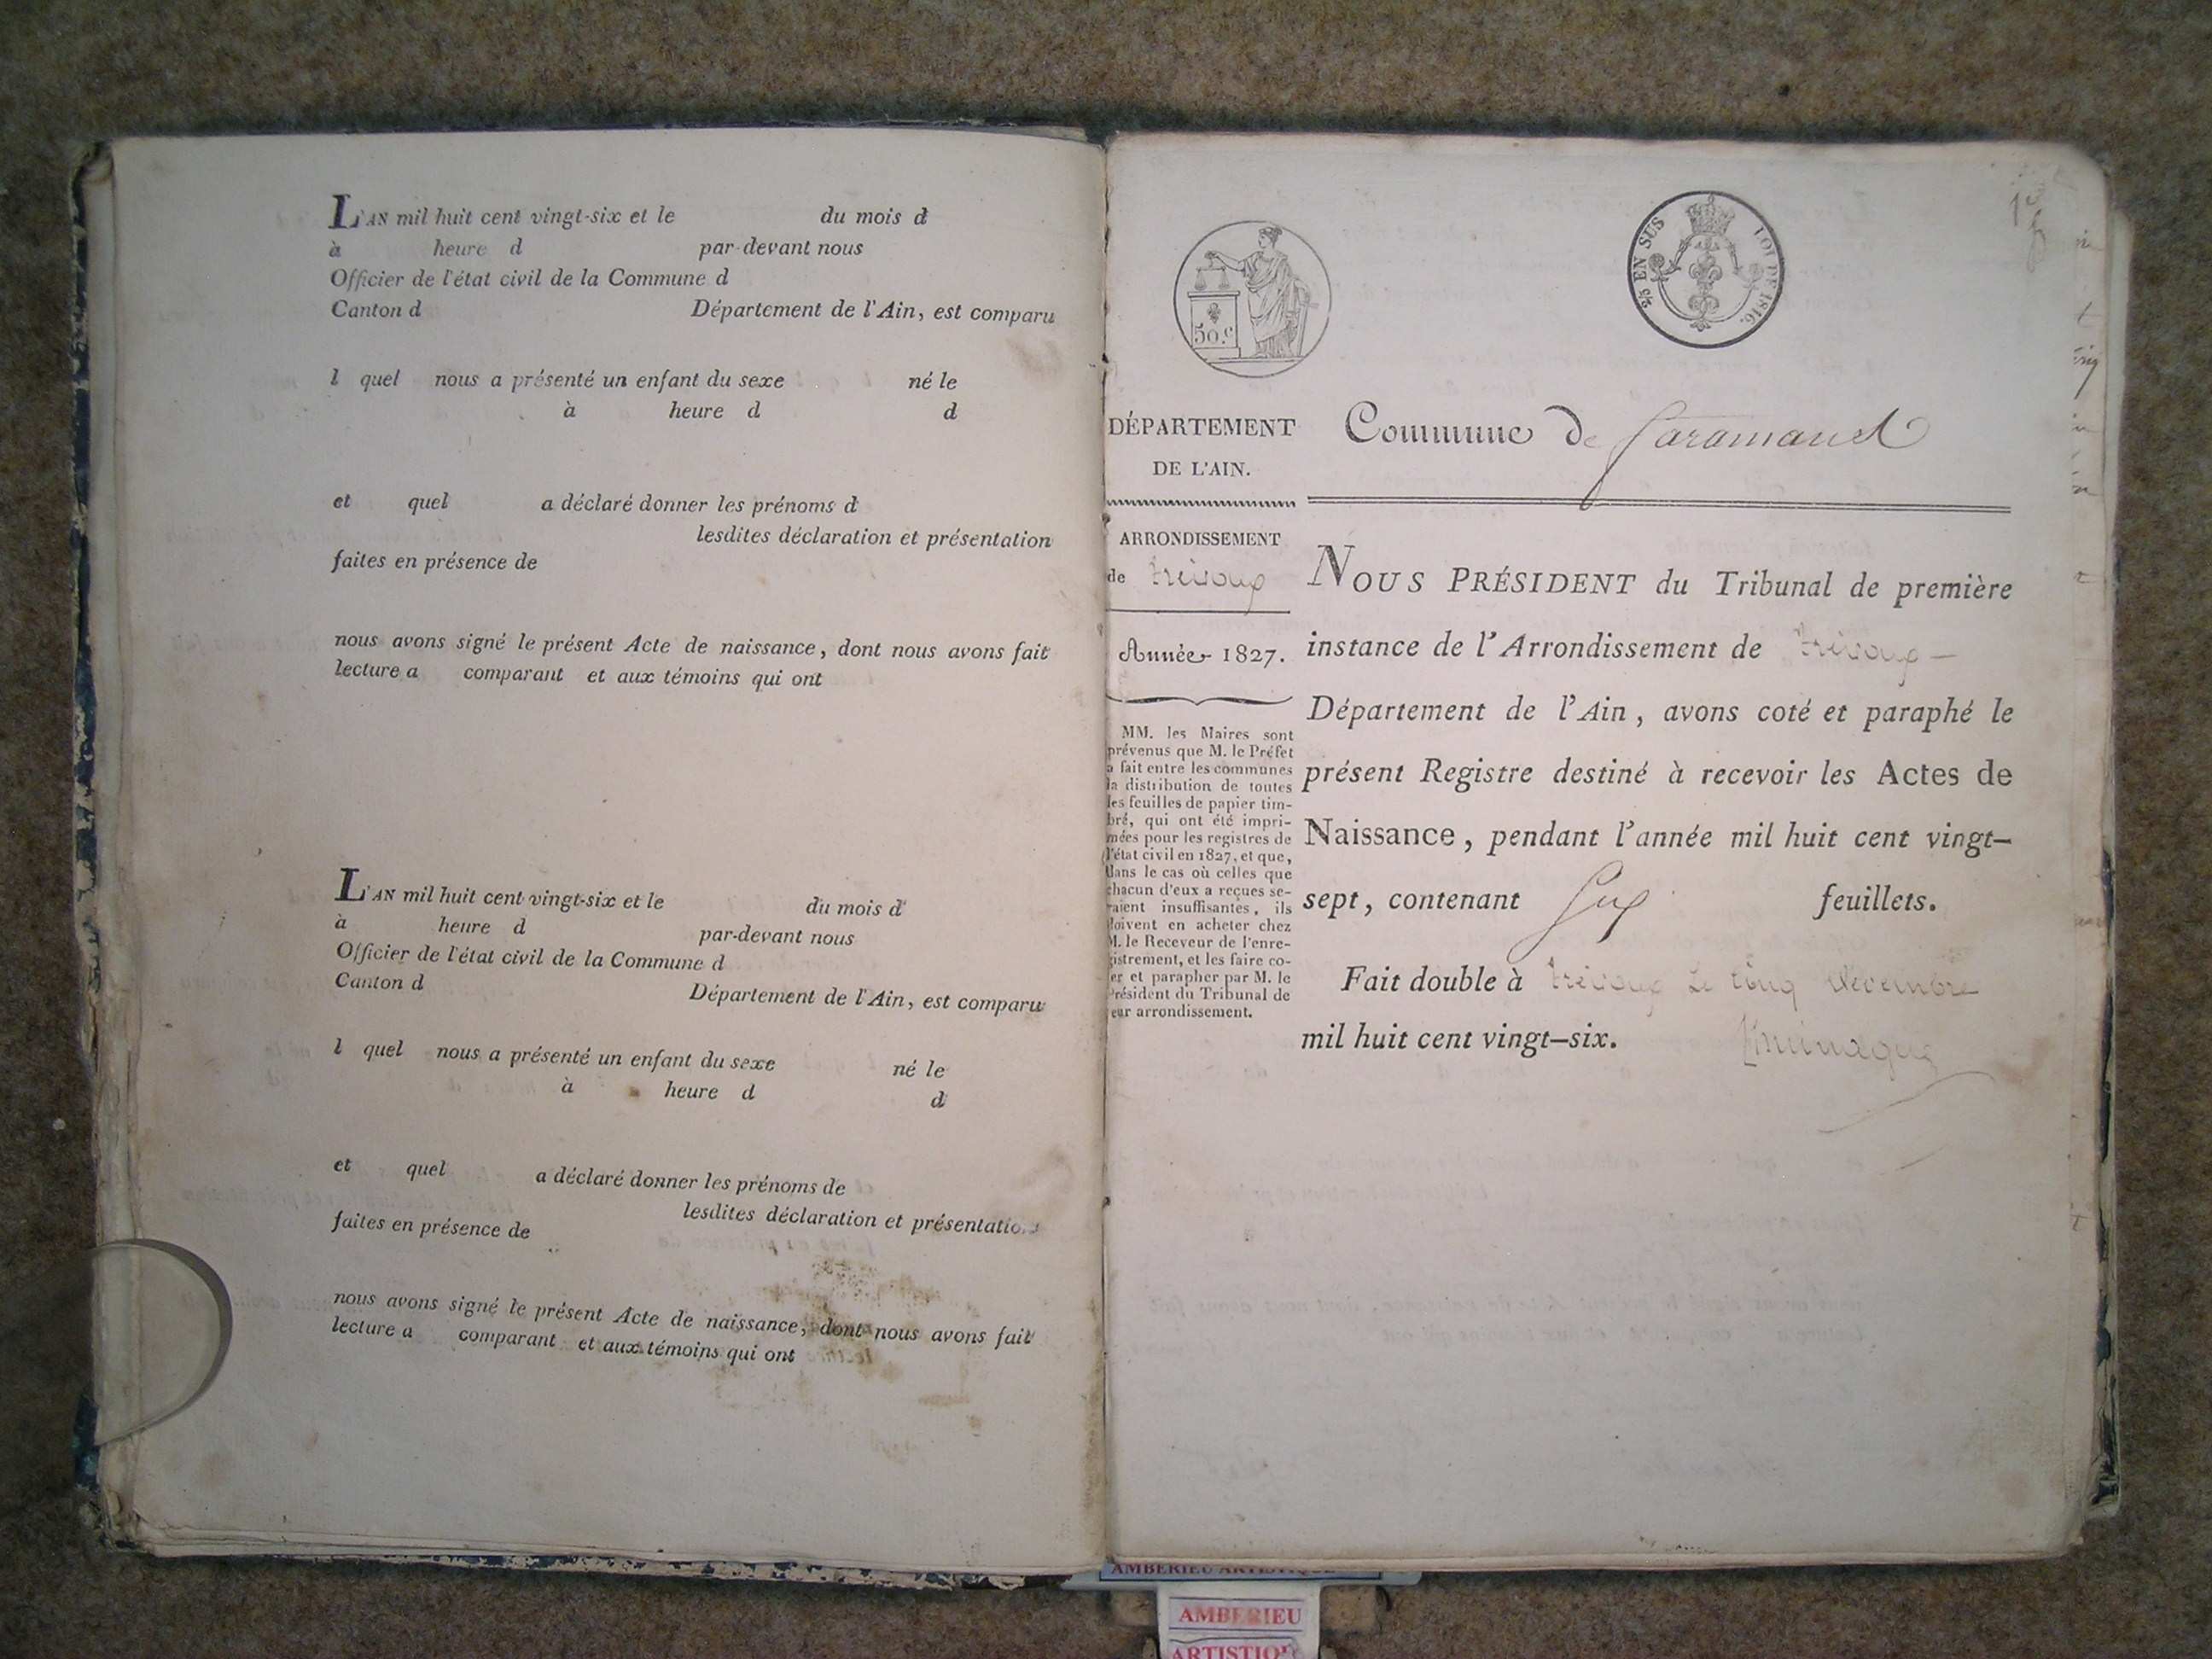 L'AN mil huit cent vingt-six et le du mois d
à heure d par-devant nous
Officier de l'état civil de la Commune d
Canton d Département de l'Ain, est comparu
l quel nous a présenté un enfant du sexe né le
à heure d d
et quel a déclaré donner les prénoms d
lesdites déclaration et présentation
faites en présence de
nous avons signé le présent Acte de naissance, dont nous avons fait
lecture a comparant et aux témoins qui ont
L'AN mil huit cent vingt-six et le du mois d
à heure d par-devant nous
Officier de l'état civil de la Commune d
Canton d Département de l'Ain, est comparu
l quel nous a présenté un enfant du sexe né le
à heure d d
et quel a déclaré donner les prénoms de
lesdites déclaration et présentation
faites en présence de
nous avons signé le présent Acte de naissance, dont nous avons fait
lecture a comparant et aux témoins qui ont
50.c
2/5 EN SUS LOI DE 1816.
DÉPARTEMENT
DE L'AIN.
ARRONDISSEMENT
de trévoux
Année 1827.
MM. les Maires sont
prévenus que M. le Préfet
a fait entre les communes
la distribution de toutes
les feuilles de papier tim-
bré, qui ont été impri-
mées pour les registres de
l'état civil en 1827, et que,
dans le cas où celles que
chacun d'eux a reçues se-
raient insuffisantes, ils
doivent en acheter chez
M. le Receveur de l'enre-
gistrement, et les faire co-
ter et parapher par M. le
Président du Tribunal de
leur arrondissement.
Commune de
NOUS PRÉSIDENT du Tribunal de première
instance de l'Arrondissement de trévoux —
Département de l'Ain, avons coté et paraphé le
présent Registre destiné à recevoir les Actes de
Naissance, pendant l'année mil huit cent vingt-
sept, contenant feuillets.
Fait double à trévoux Le cinq décembre
mil huit cent vingt-six.
AMBERIEU ARTISTIQUE
AMBERIEU
ARTISTIQUE